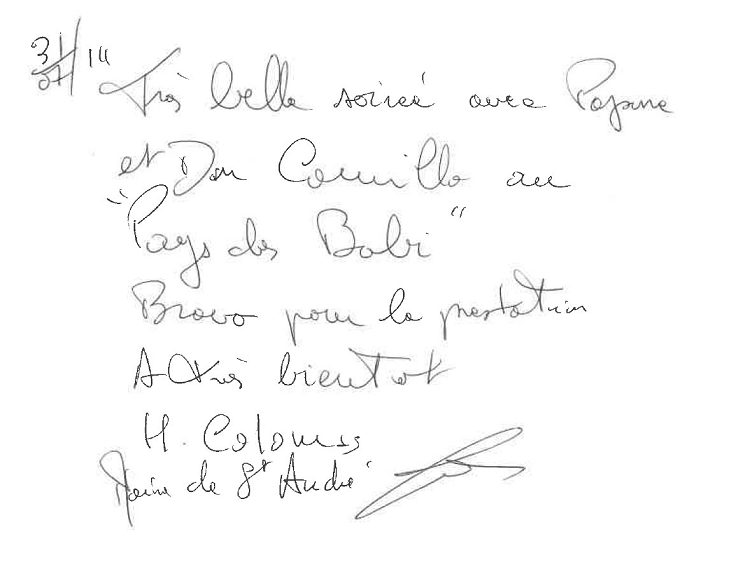 31/07/14
Très belle soirée avec Pagane
et Don Camillo au
"Pays des Babi"
Bravo pour la prestation
A très bientot
H. Colomes
Maire de St André